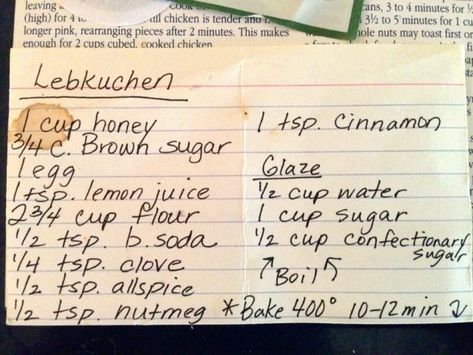 leaving
(high) for 4 to
longer pink, rearranging pieces after 2 minutes. This makes
enough for 2 cups cubed, cooked chicken.
cans, 3 to 4 minutes for ½
3½ to 5 minutes for 1 cu
nuts may toast first on
Lebkuchen
1 cup honey
3/4 c. Brown sugar
1 egg
1 tsp. lemon juice
2 3/4 cup flour
1/2 tsp. b. soda
1/4 tsp. clove
1/2 tsp. allspice
1/2 tsp. nutmeg
1 tsp. cinnamon
Glaze
1/2 cup water
1 cup sugar
1/2 cup confectionary
sugar
↗ Boil ↖
*Bake 400° 10-12 min ↓